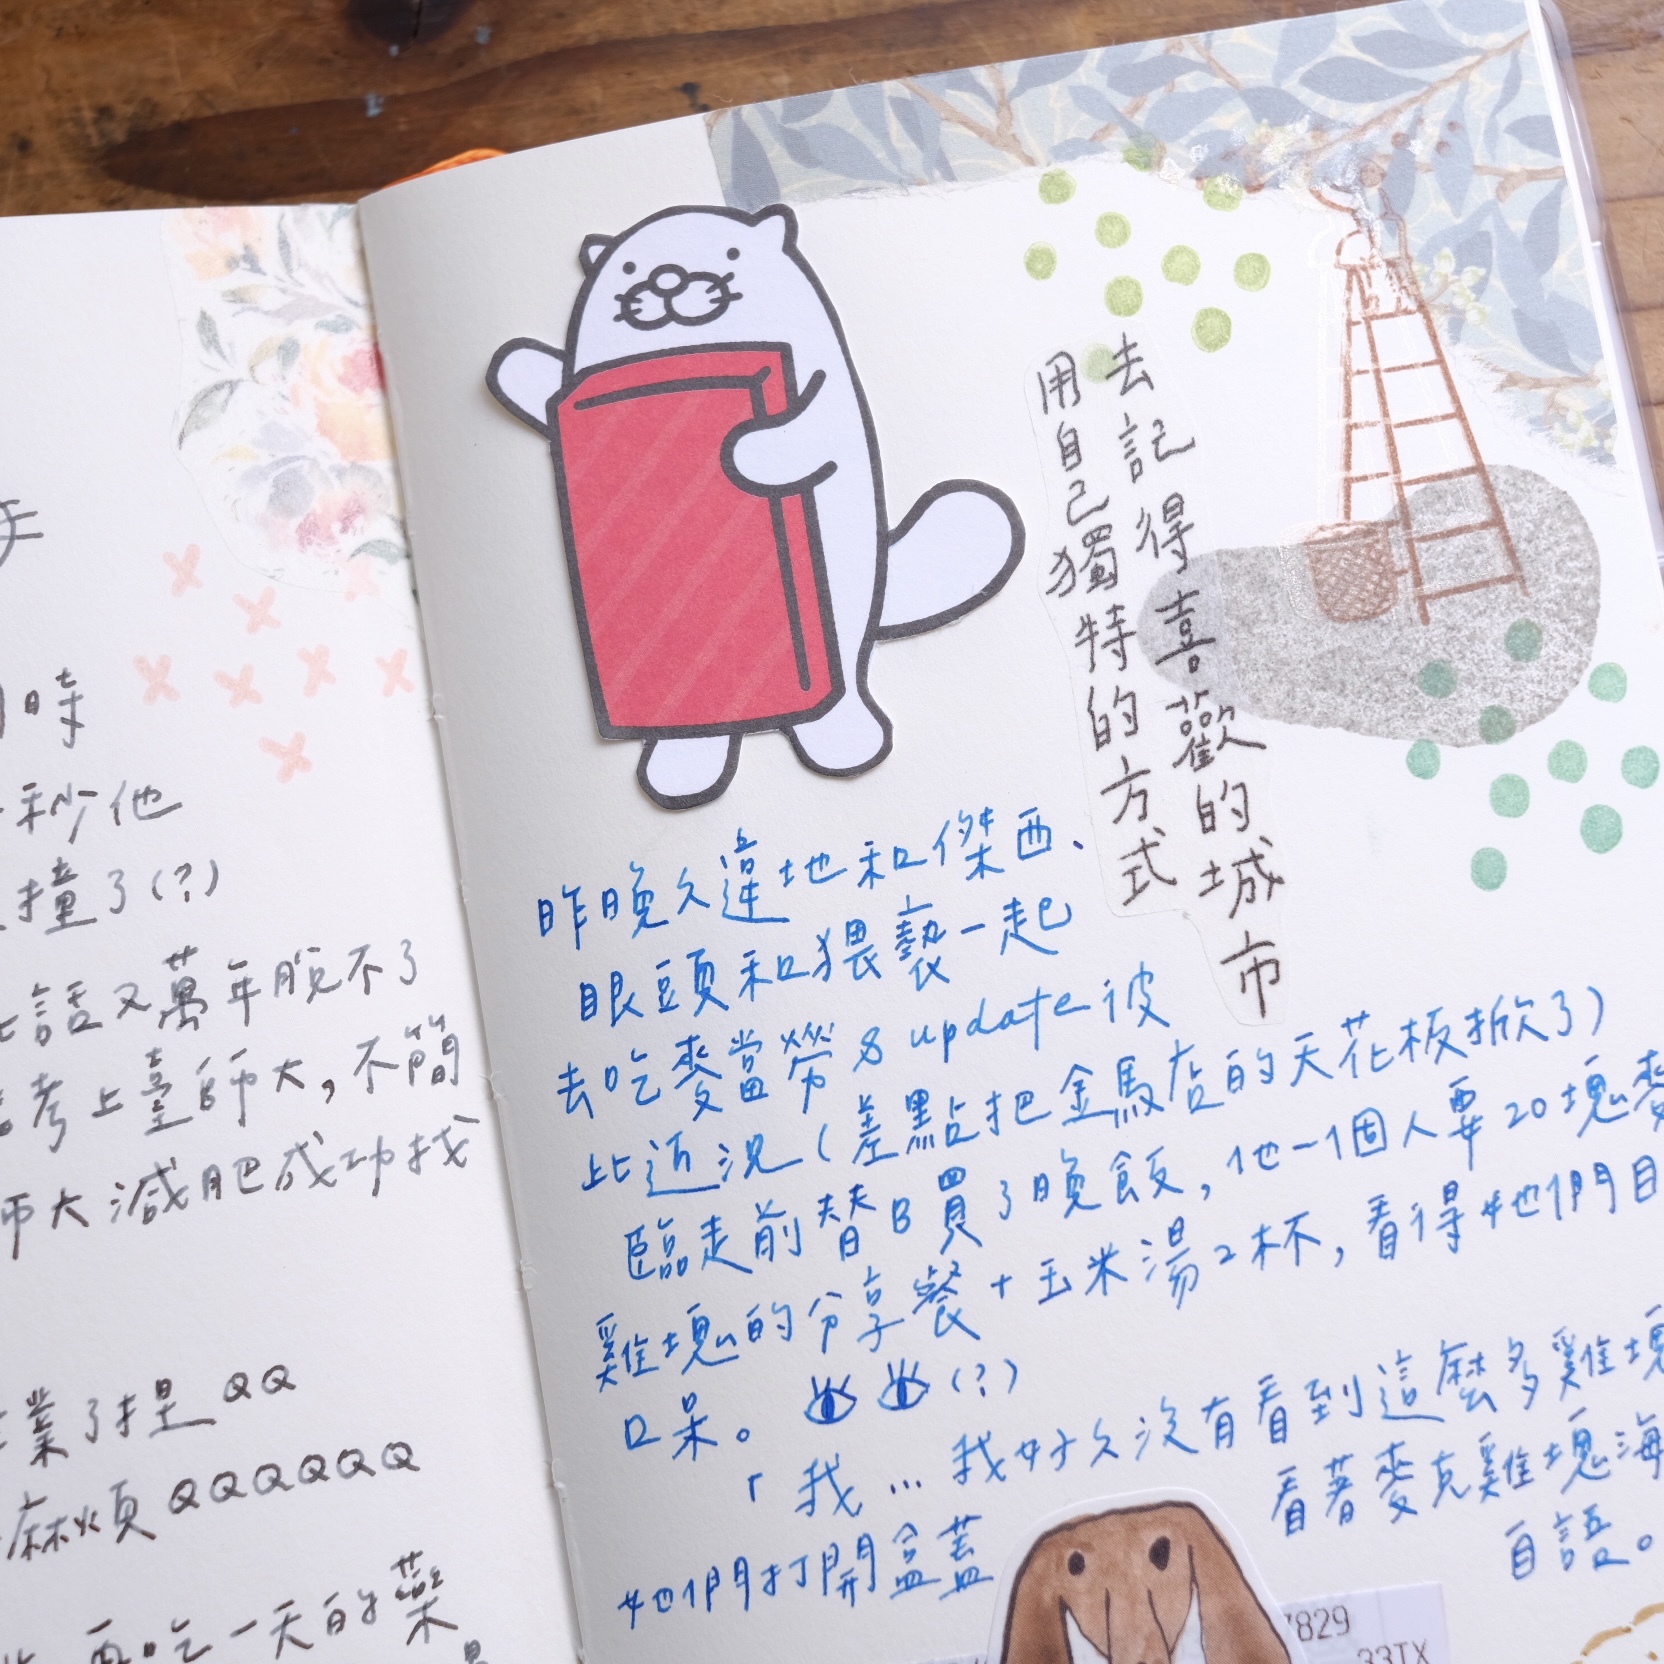 時
秒他
撞了(?)
話又萬年脫不了
考上臺師大,不簡
師大減肥成功找
業了捏QQ
麻煩QQQQQQ
再吃一天的藥
用自己獨特的方式
去記得喜歡的城市
昨晚久違地和傑西、
眼頭和猥褻一起
去吃麥當勞 & update 彼
此近況(差點把金馬店的天花板掀了)
臨走前替B買了晚飯,他一個人要20塊麥
雞塊的分享餐+玉米湯2杯,看得她們目
口呆。(?)
「我...我好久沒有看到這麼多雞塊
她們打開盒蓋
看著麥克雞塊海
自語。
7829
33TX